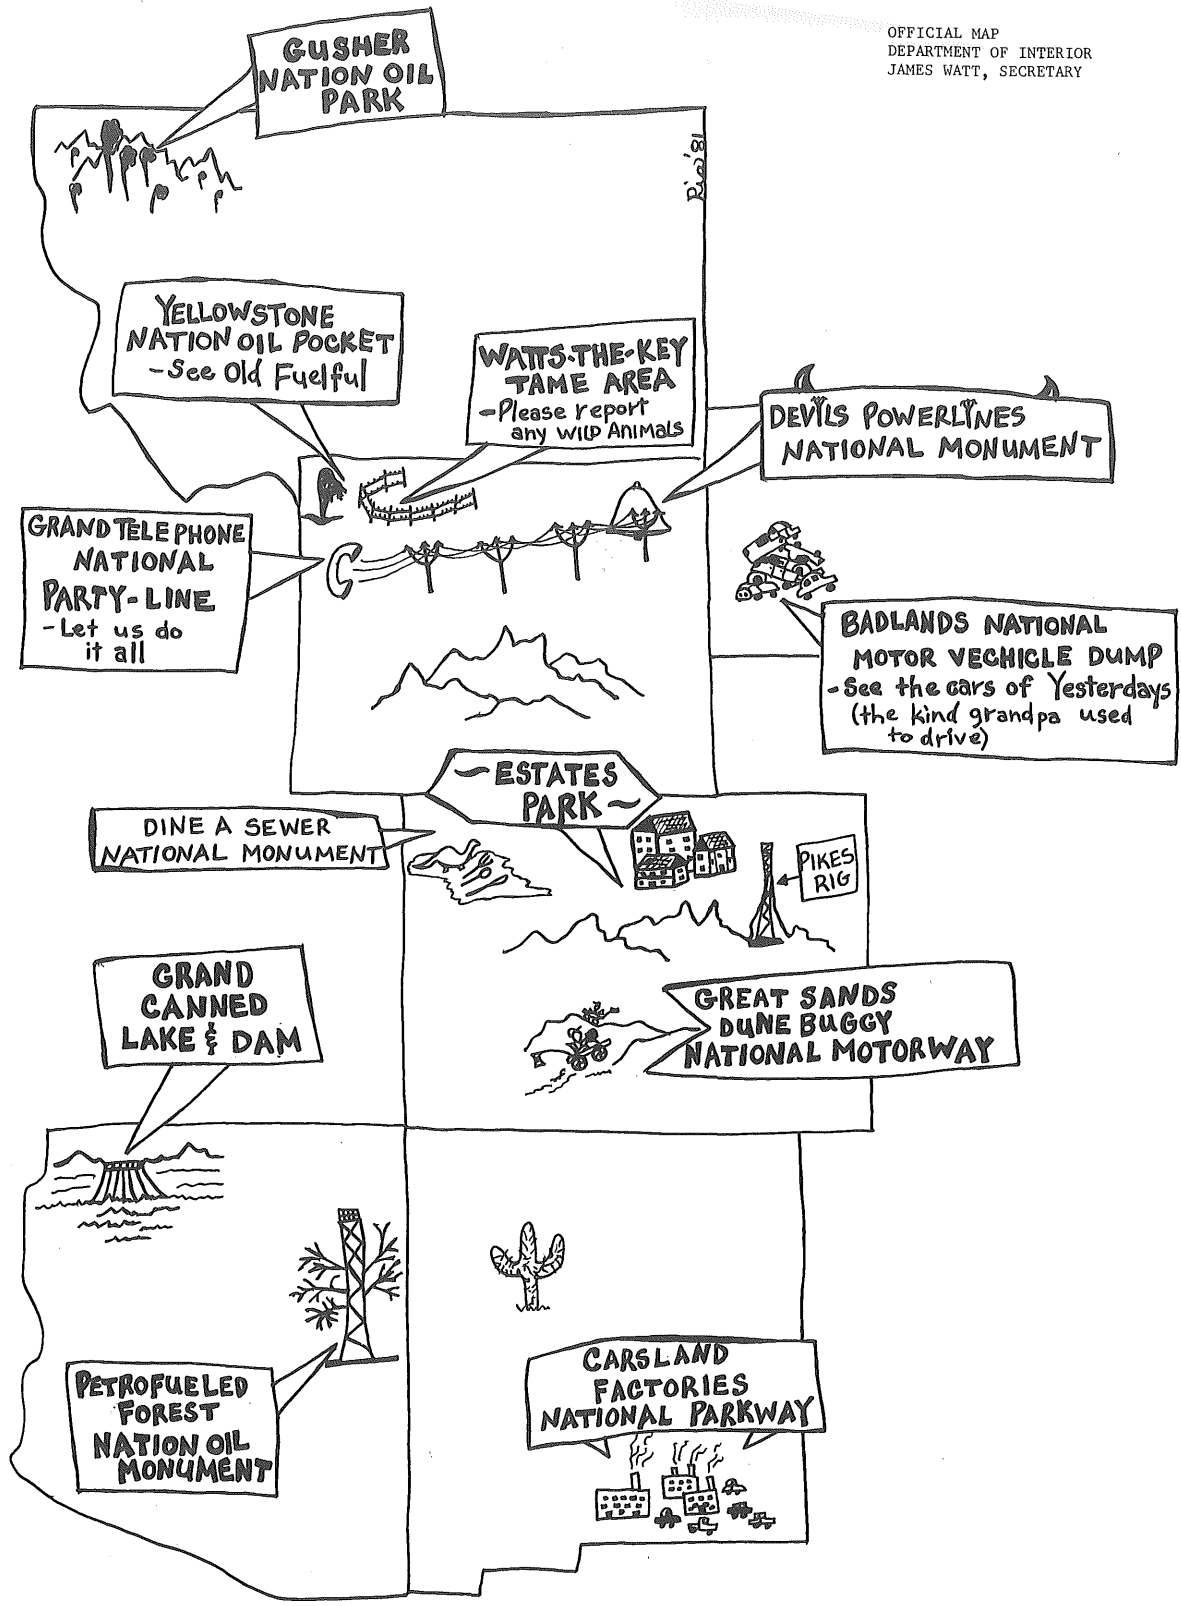 OFFICIAL MAP
DEPARTMENT OF INTERIOR
JAMES WATT, SECRETARY
GUSHER
NATION OIL
PARK
YELLOWSTONE
NATION OIL POCKET
-See Old Fuelful
WATTS-THE-KEY
TAME AREA
-Please report
any WILD ANIMALS
DEVILS POWERLINES
NATIONAL MONUMENT
GRAND TELEPHONE
NATIONAL
PARTY-LINE
-Let us do
it all
BADLANDS NATIONAL
MOTOR VECHICLE DUMP
-See the cars of Yesterdays
(the kind grandpa used
to drive)
ESTATES
PARK
DINE A SEWER
NATIONAL MONUMENT
PIKES
RIG
GRAND
CANNED
LAKE & DAM
GREAT SANDS
DUNE BUGGY
NATIONAL MOTORWAY
PETROFUELED
FOREST
NATION OIL
MONUMENT
CARSLAND
FACTORIES
NATIONAL PARKWAY